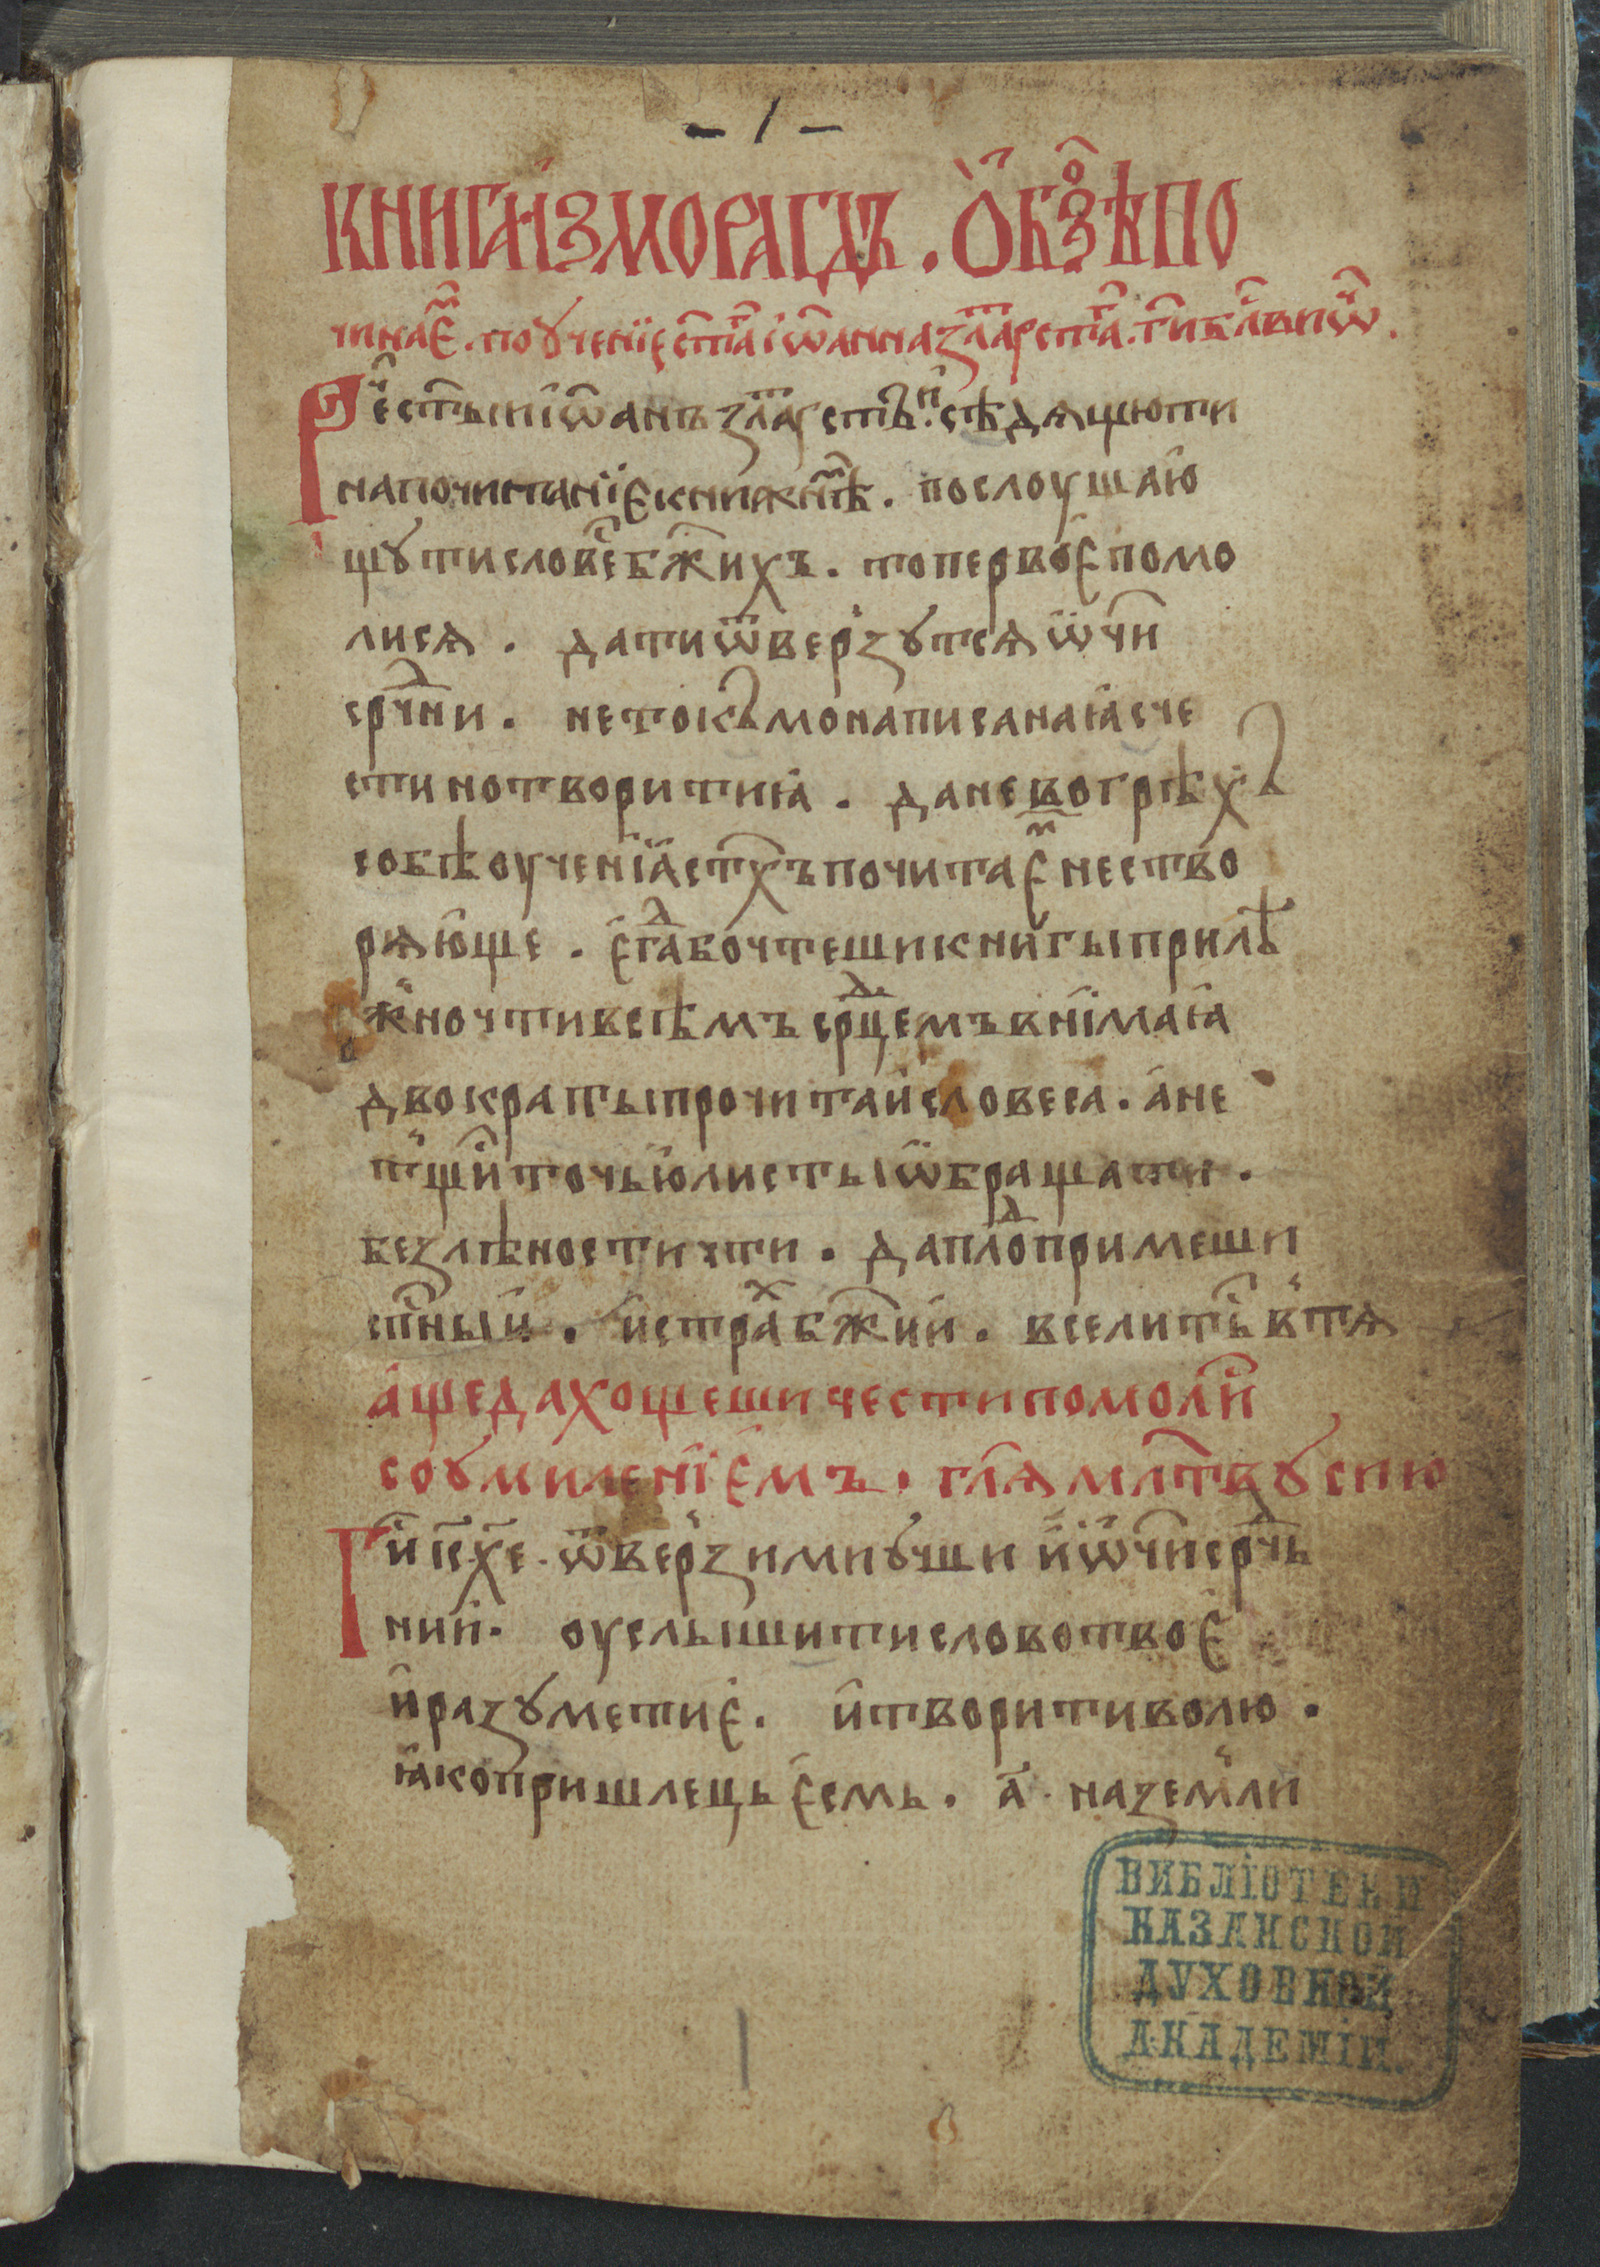 - 1 -
КНИГАИЗМОРАГДЪ . О БЗѢПО
чинаѐ . поученїе ст҃а іѡанна златоꙋстаго . гⷭ҇и бл҃ви ѿч҃е .
Рече ст҃ыи іѡанъ златоꙋстыи . сѣдящюти
напочитанїе книжнѣ . послоушаю
щꙋти словесъ бж҃иихъ . то первоє помо
лися . дати ѿверзꙋтся ѡчи
срⷣчни . нетокъмо написаная сче
сти нотворити я . дане во грѣхъ
собѣ оученїя ст҃хъ почитаєⷨ нество
ряюще . єгⷣа бо чтеши книгы прилѣ
жно чти всѣмъ срⷣцемъ внїмая
двократы прочитай словеса . ане
тщи точью листы ѡбращати .
безлѣности чти . даплоⷣ примеши
сп҃сныи . и страⷯ бж҃ии . вселитьс втя
аще да хощеши чести помолис
соумиленїємъ . гл҃я мл҃твꙋ сию
Гⷭ҇и іс҃ х҃е . ѿверзи ми ꙋши и ѡчи срⷣчь
нии . оуслышити слово твоє
и разꙋмети є . и творити волю .
яко пришлець єсмь . а҃ . на земли
БИБЛІОТЕКИ
КАЗАНСКОЙ
ДУХОВНОЙ
АКАДЕМІИ.